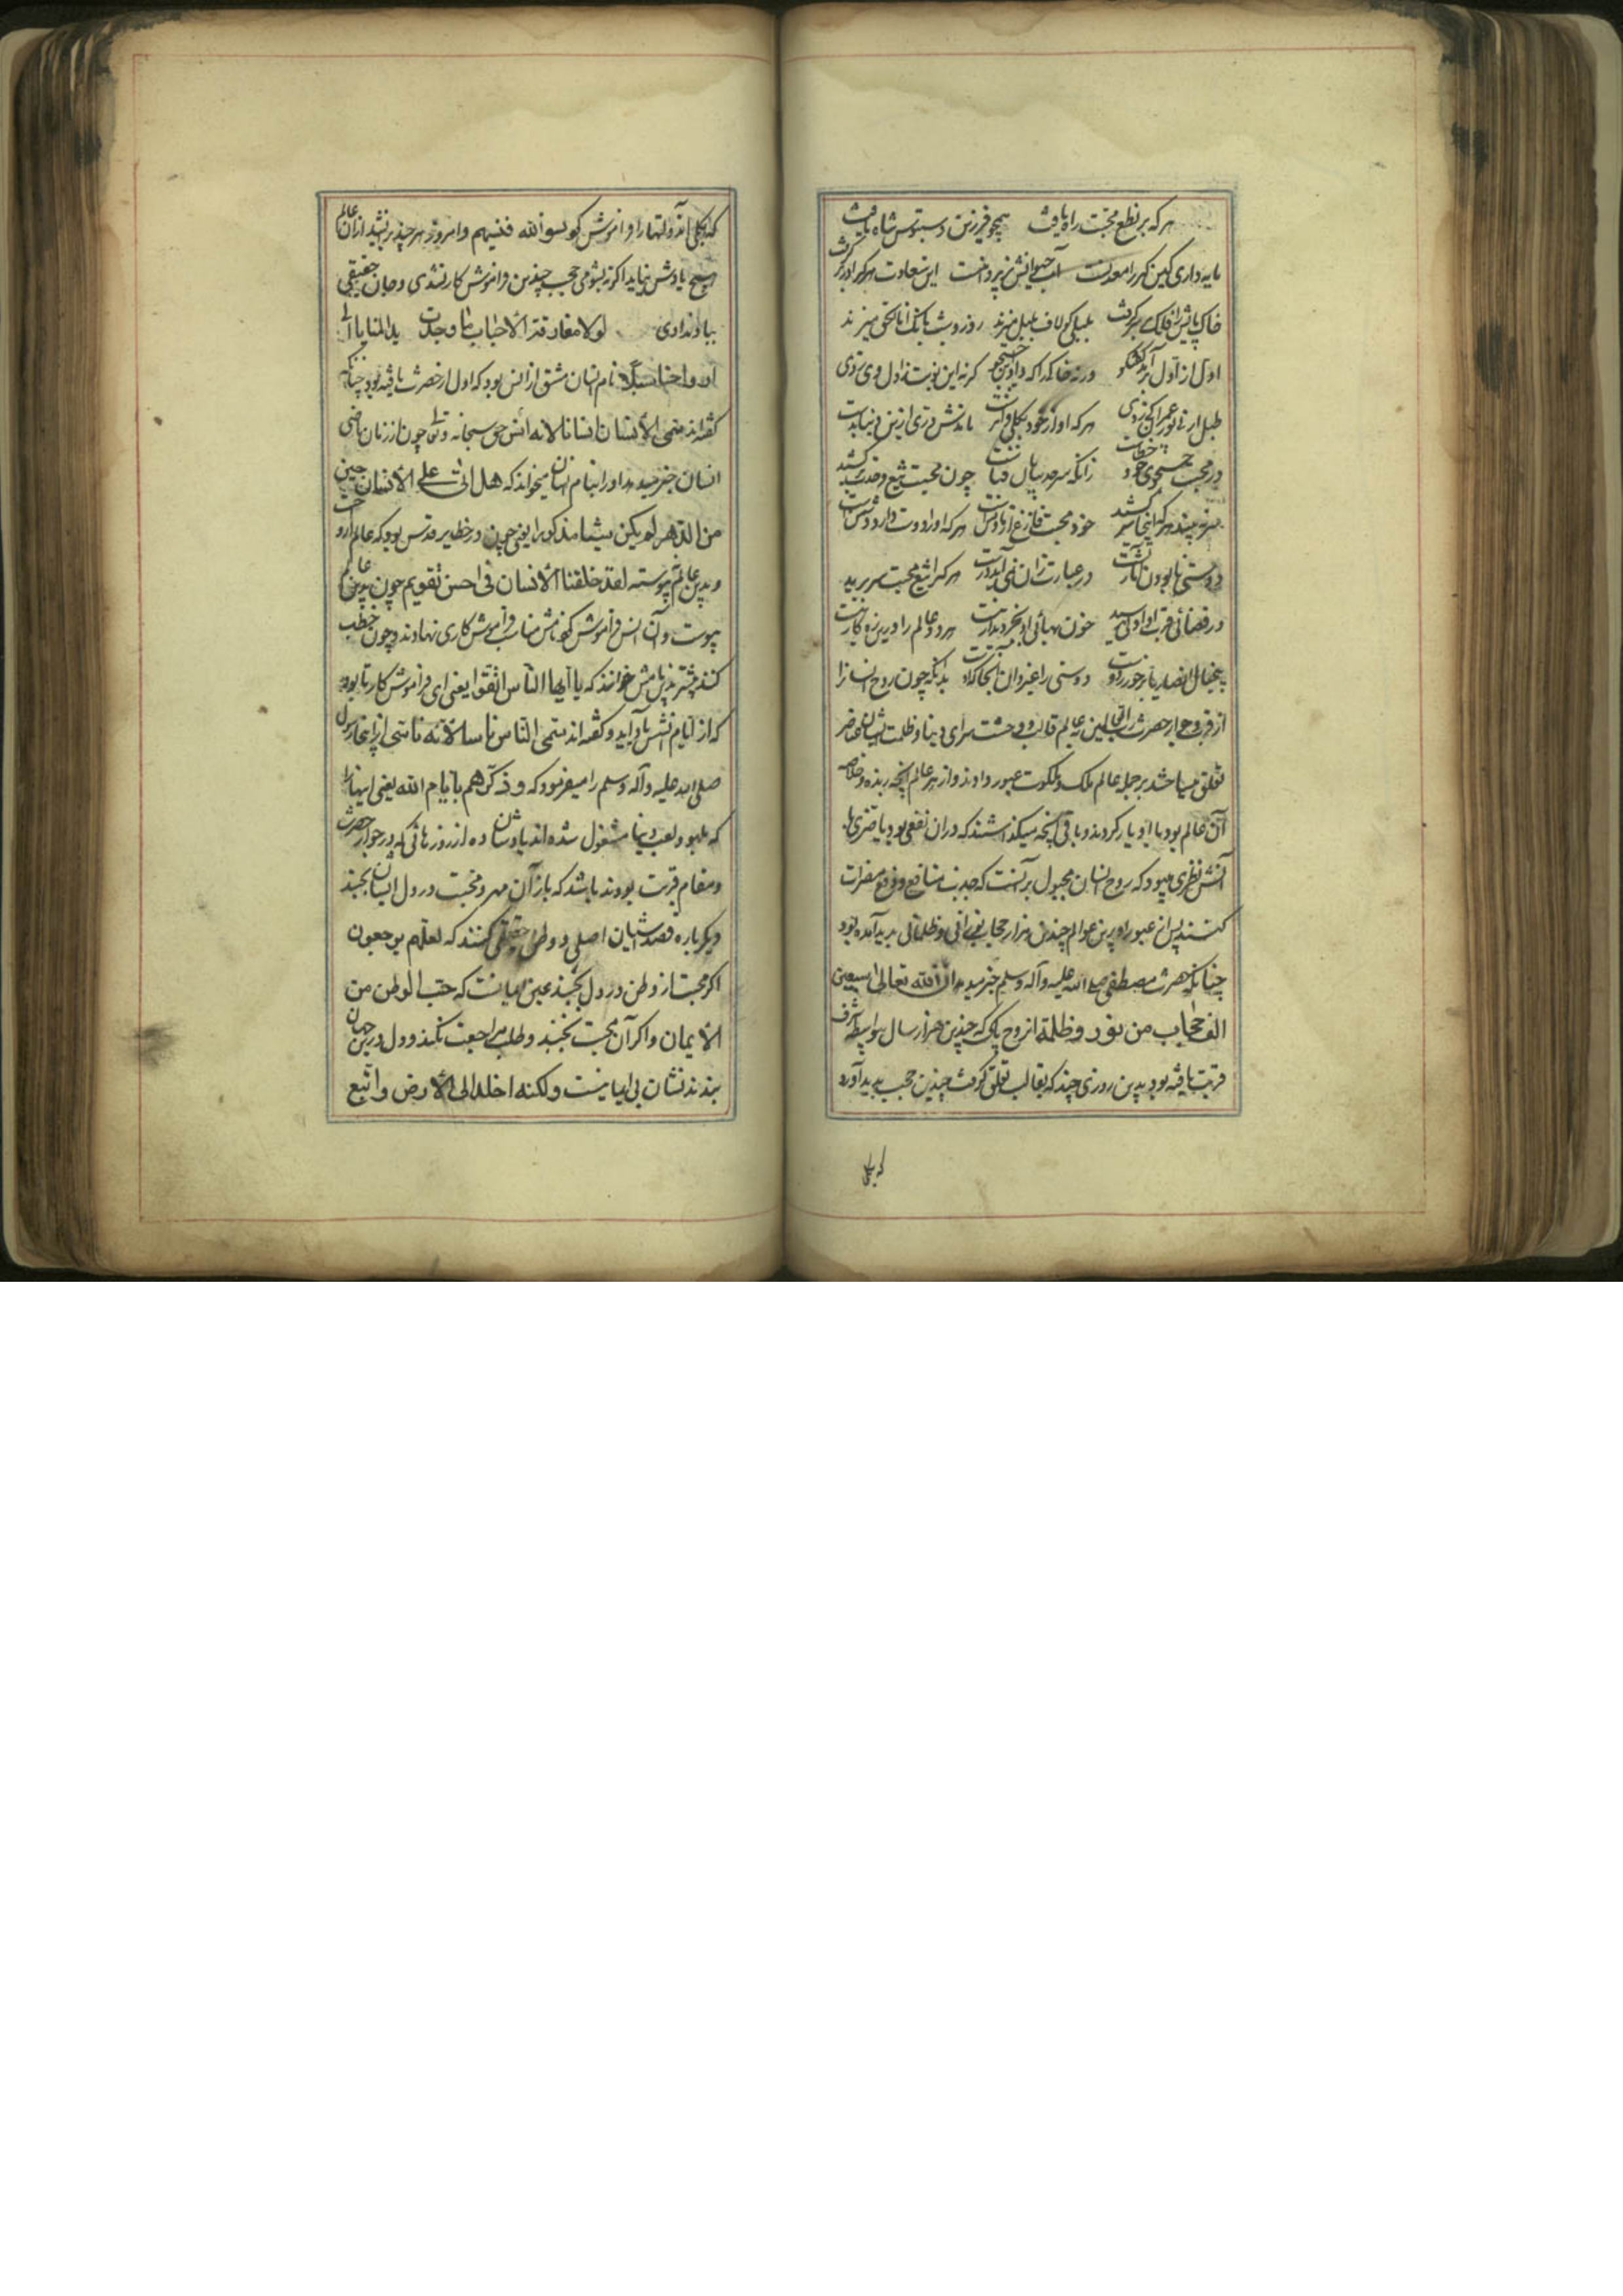 هر که بر نطع محبت راه یافت همچو فرزین دستبوس شاه یافت
مایه داری کین گهر را معدنست آب حیوانش زیر دامنست این سعادت هر که را در بر گرفت
خاک پایش از فلک سر برگرفت بلبلی کو لاف بلبل میزند روز و شب بانگ انا الحق میزند
اول از اول آمد گفتگو ورنه خاکی را که دادی جستجو گرنه این نوبت ز اول وی زدی
طبل ارنی پور عمران کی زدی هر که او از خود بکلی وانرست ماندنش در وی ازین دنیا بدست
در محبت جستجوی خود خطاست زانکه سرحد بیابان فناست چون محبت تیغ وحدت برکشید
هر که اینجا سر کشید خود محبت فارغ از ما و تو است هر که او را دوست دارد دوست اوست
دوستی ما بودن آثارست در عبارت زان نمی آید درست هر کرا تیغ محبت سر برید
در فضائی قربت او اولی رسید خون بهائی او بجز دیدار نیست هر دو عالم را درین ره کار نیست
دوستی را غیر و آن آنجا که او بدانکه چون روح انسان را
از قرب و جوار حضرت رب العالمین به عالم قالب و وحشت سرای دنیا و ظلمت آشیان عناصر
تعلق میساختند بر جمله عالم ملک و ملکوت عبور دادند و از هر عالم آنچه زبده و خلاصه
آن عالم بود با او یار کردند و باقی آنچه میگذاشتند که در ان نفعی بود یا ضری ها
آنش نظری میبود که روح انسان مجبول بر آنست که جذب منافع و دفع مضرات
کنند پس از عبور او برین عوالم چندین هزار حجاب نورانی و ظلمانی پدید آمده بود
چنانکه حضرت مصطفی صلی الله علیه وآله وسلم خبر میدهد ان لله تعالی سبعین
الف حجاب من نور وظلمة از روح پاکی که چندین هزار سال بواسطه شرف
قربت یافته بود بدین روزی چند که بقالب تعلق گرفت چندین حجب پدید آورد
که بکلی
که بکلی آن دولتها را فراموش کرد نسوا الله فنسیهم و امروز هر چند براندیشد از ان عالم
هیچ یادش نیاید اگر نه بشومی حجب چندین فراموش کار نشدی و جان حقیقی
بیاد ندادی لولا مفارقة الاحباب ما وجدت یدا المنایا الی
ارواحنا سبلا نام انسان مشتق از انس بود که اول از حضرت یافته بود چنانکه
گفته اند سمی الانسان انسانا لانه انس حق سبحانه وتعالی چون از زمان ماضی
انسان خبر میدهد او را بنام انسان میخواند که هل اتی علی الانسان حین
من الدهر لم یکن شیئا مذکورا یعنی چون در حظایر قدس بود که عالم ارواحست
و بدین عالم نپیوسته لقد خلقنا الانسان فی احسن تقویم چون بدین عالم
پیوست و آن انس فراموش کرد نامش مناسب فراموش کاری نهادند و چون خطب
کنند بیشتر بدین نامش خوانند که یا ایها الناس اتقوا یعنی ای فراموش کار تا بود
که از ایام انسش یاد آید و گفته اند سمی الناس ناسا لانه ناسی از اینجا رسول
صلی الله علیه وآله وسلم را میفرمود که وذکرهم بایام الله یعنی اینها را
که بلهو و لعب دنیا مشغول شده اند یادشان ده از روز هائی که در جوار حضرت
و مقام قربت بودند باشد که باز آن مهر و محبت در دل ایشان بجنبد
دیگر باره قصد آشیان اصلی و وطن حقیقی کنند که لعلهم یرجعون
اگر محبت از وطن در دل بجنبد عین ایمانست که حب الوطن من
الایمان و اگر آن محبت نجنبد و طلب مراجعت نکند و دل درین جهان
بندند نشان بی ایمانیست ولکنه اخلد الی الارض واتبع